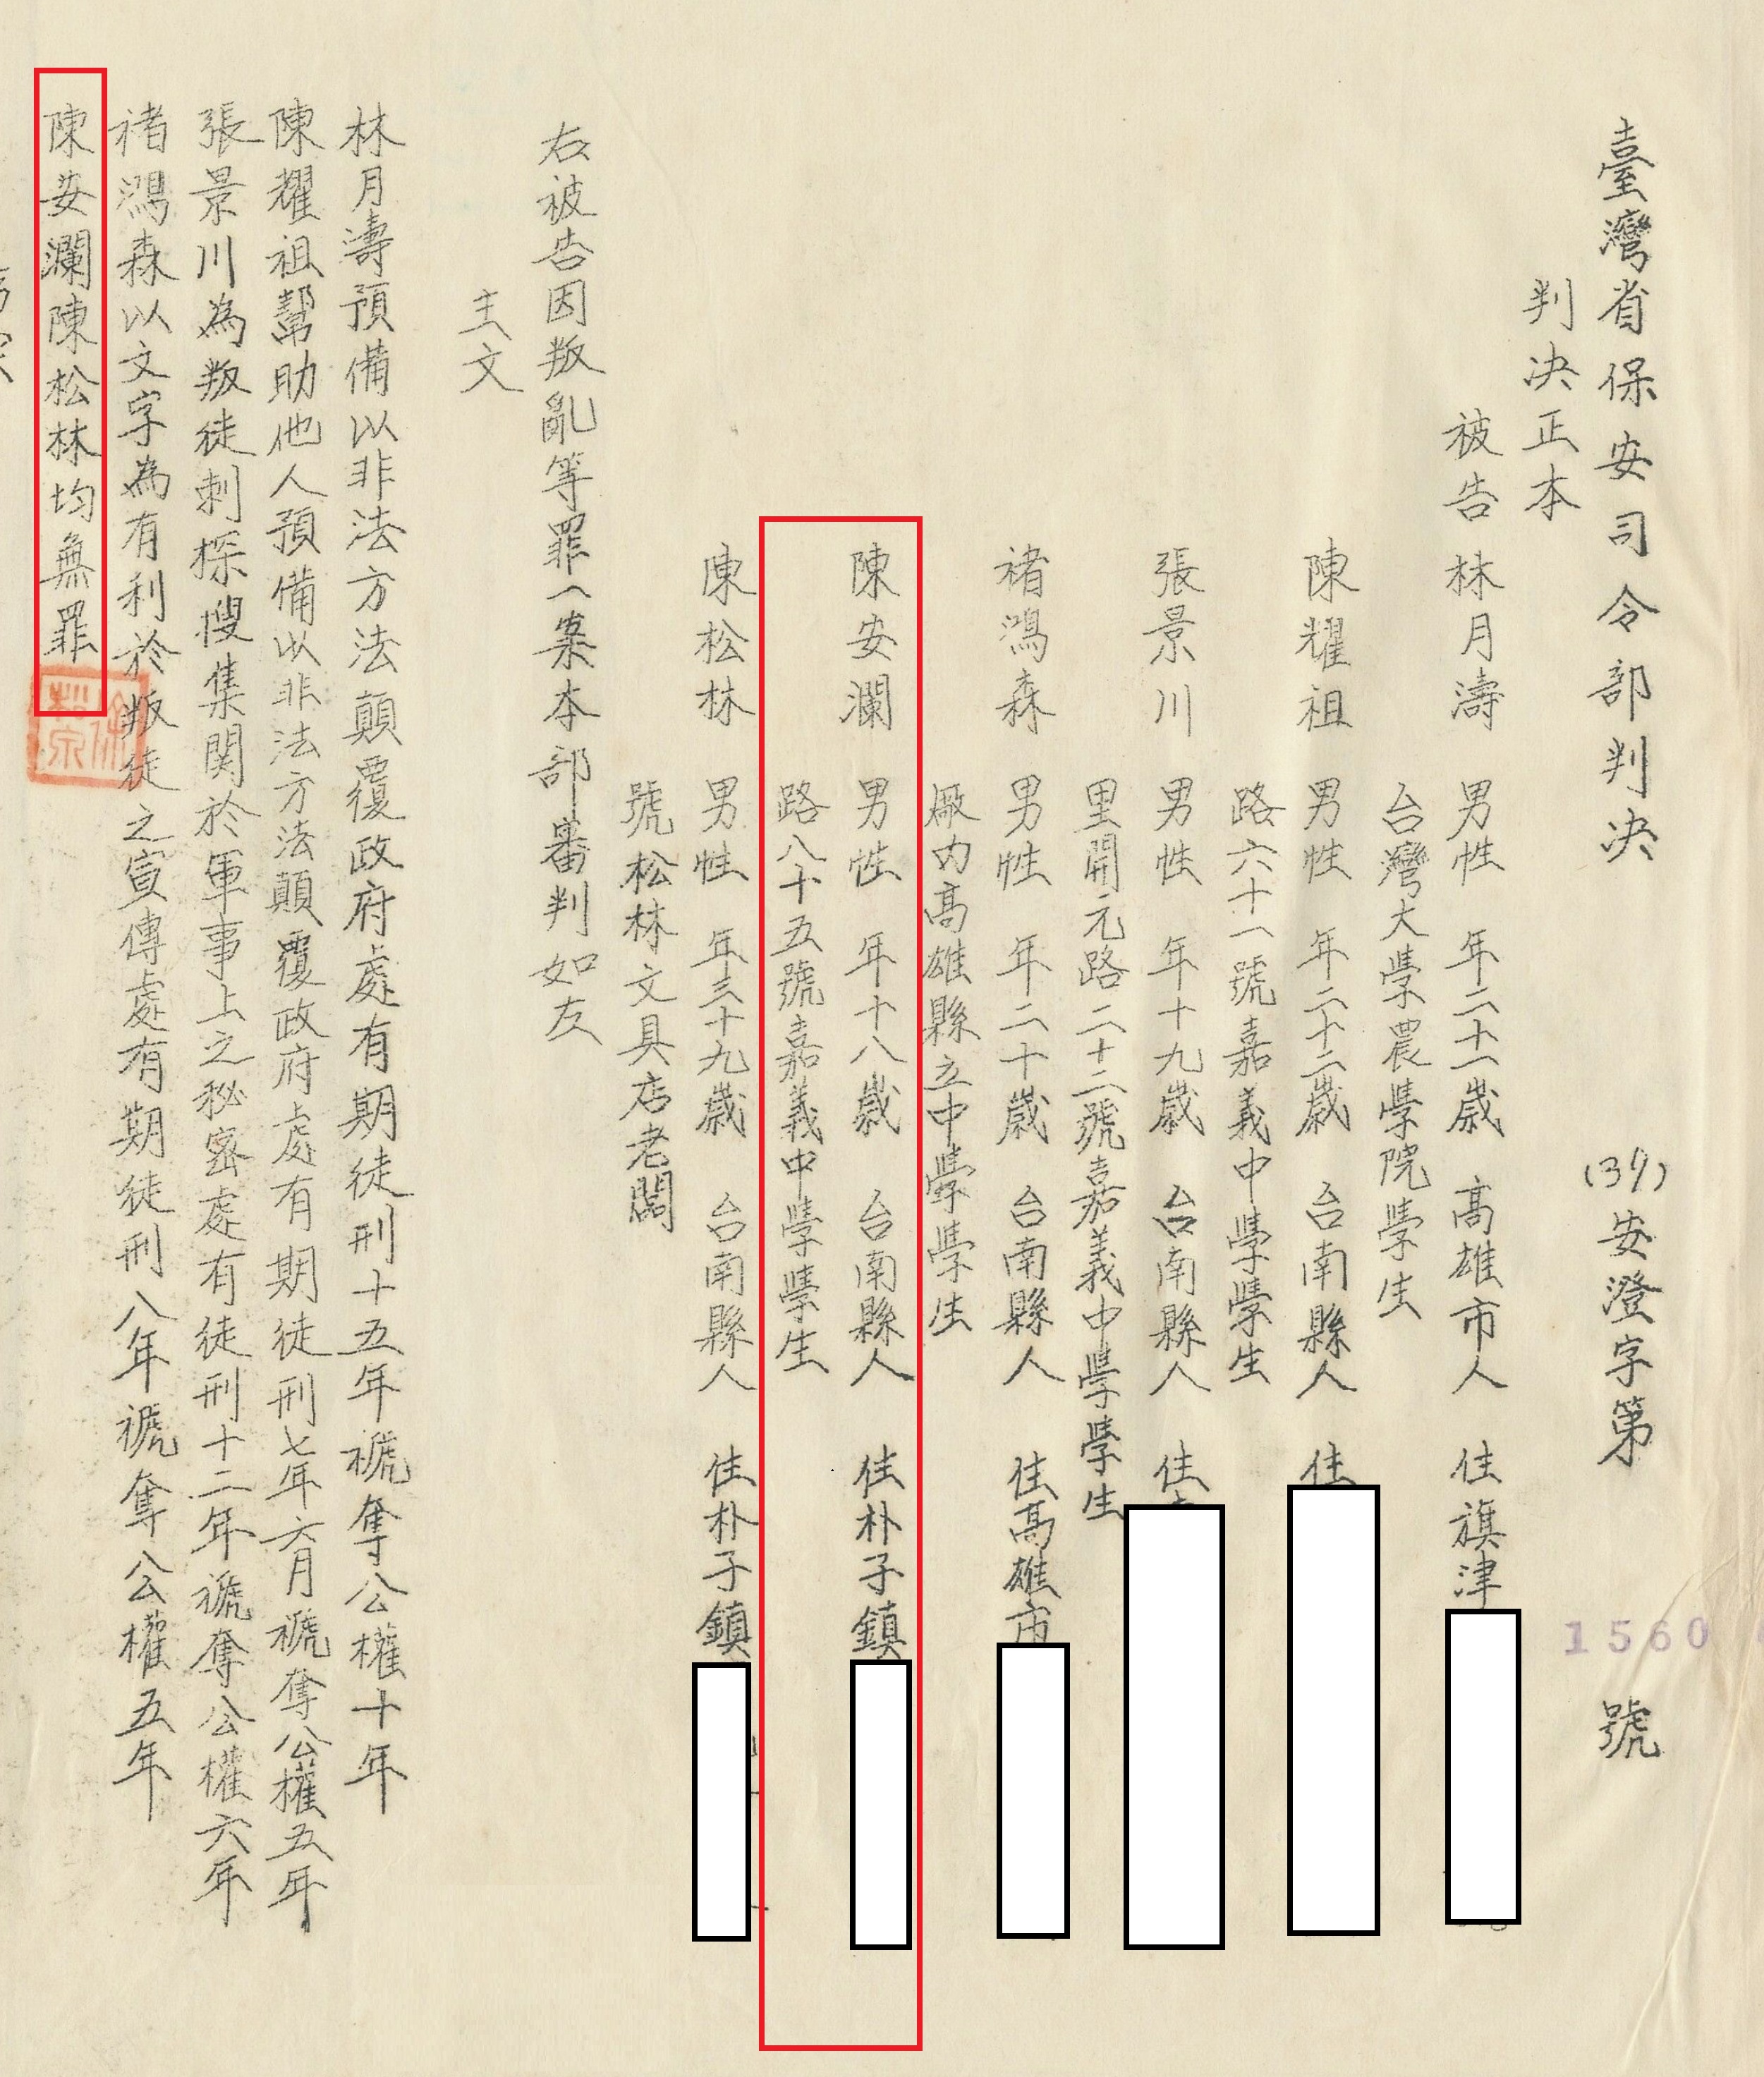 臺灣省保安司令部判決 (39)安澄字第1560號
判決正本
被告 林月濤 男性 年二十一歲 高雄市人 住旗津
台灣大學農學院學生
陳耀祖 男性 年二十二歲 台南縣人 住
路六十一號嘉義中學學生
張景川 男性 年十九歲 台南縣人 住
里開元路二十二號嘉義中學學生
褚鴻森 男性 年二十歲 台南縣人 住高雄市
廠內高雄縣立中學學生
陳安瀾 男性 年十八歲 台南縣人 住朴子鎮
路八十五號嘉義中學學生
陳松林 男性 年三十九歲 台南縣人 住朴子鎮
號松林文具店老闆
右被告因叛亂等罪一案本部審判如左
主文
林月濤預備以非法方法顛覆政府處有期徒刑十五年褫奪公權十年
陳耀祖幫助他人預備以非法方法顛覆政府處有期徒刑七年六月褫奪公權五年
張景川為叛徒刺探搜集関於軍事上之秘密處有徒刑十二年褫奪公權六年
褚鴻森以文字為有利於叛徒之宣傳處有期徒刑八年褫奪公權五年
陳安瀾陳松林均無罪